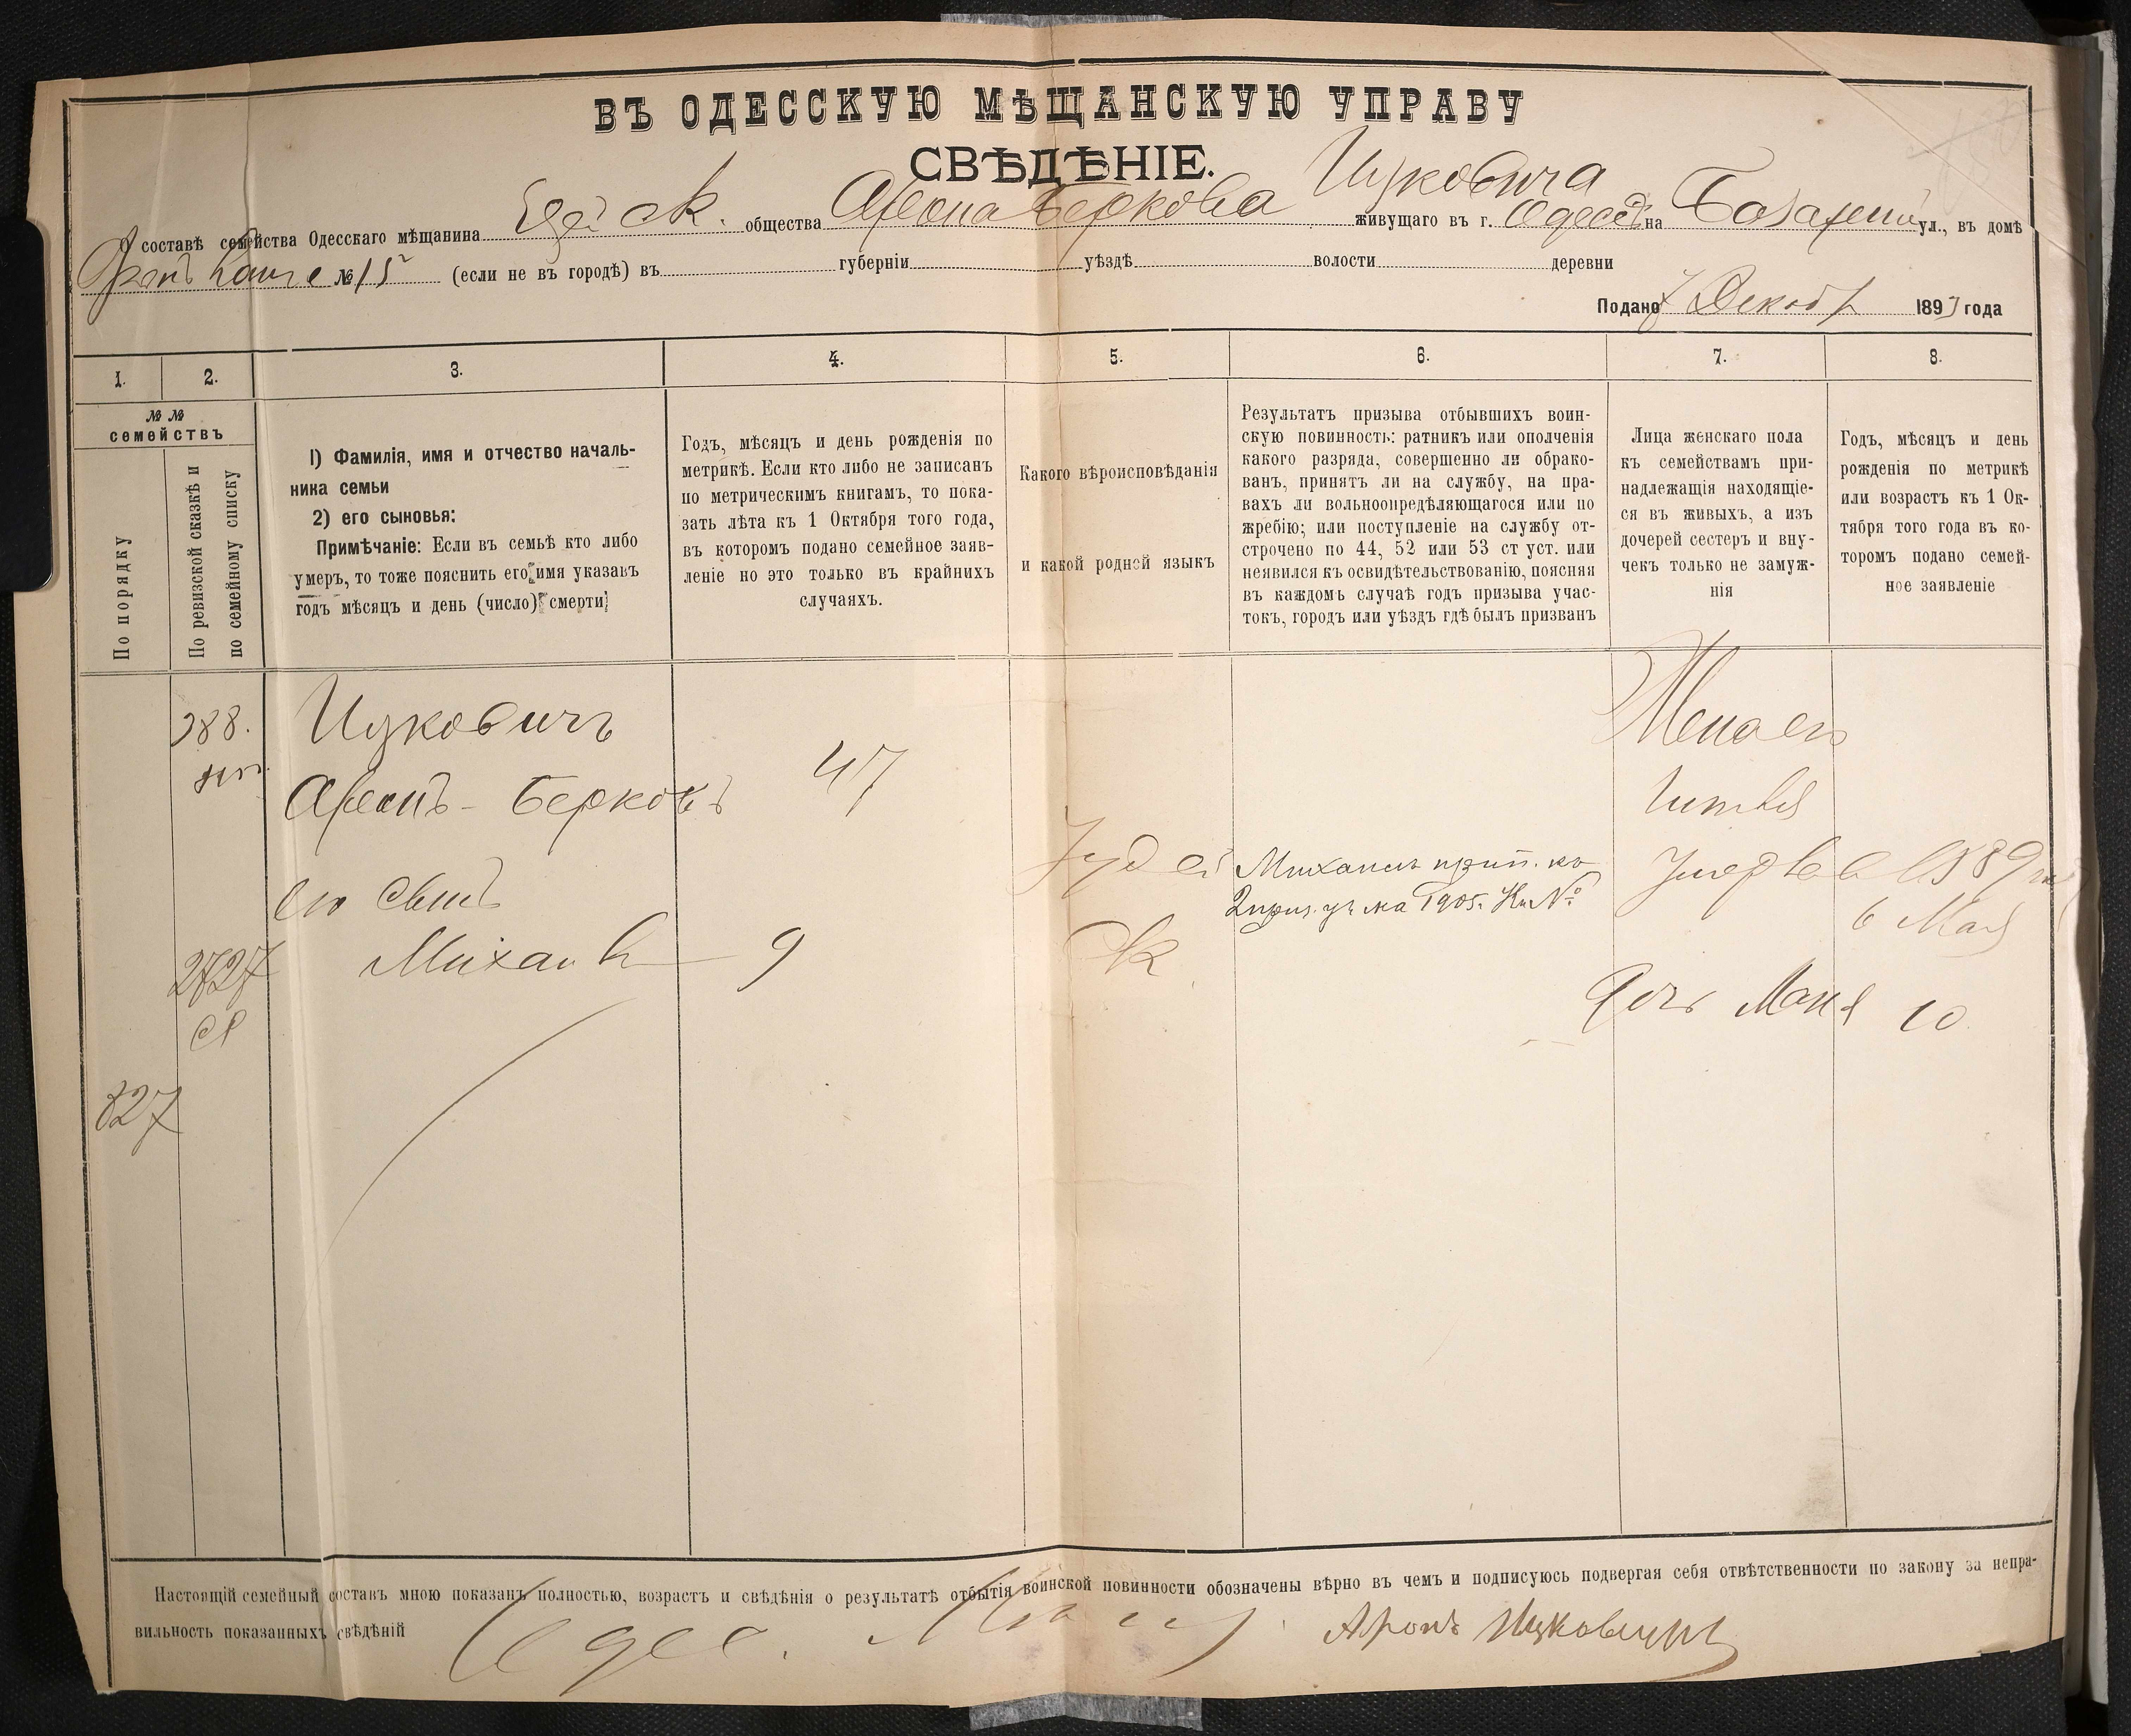 ВЪ ОДЕССКУЮ МѢЩАНСКУЮ УПРАВУ
СВѢДѢНІЕ.
Ицковича
О составѣ семейства Одесскаго мѣщанина общества Арона Беркова живущаго въ г. Одессѣ на Базарной ул., въ домѣ
№ 15 (если не въ городѣ) въ губерніи уѣздѣ волости деревни
Подано 7 Декабр 189 года
1. 2. 3. 4. 5. 6. 7. 8.
№ №
семействъ
По порядку
По ревизской сказкѣ и
по семейному списку
1) Фамилія, имя и отчество началь-
ника семьи
2) его сыновья:
Примѣчаніе: Если въ семьѣ кто либо
умеръ, то тоже пояснить его имя указавъ
годъ мѣсяцъ и день (число) смерти
Годъ, мѣсяцъ и день рожденія по
метрикѣ. Если кто либо не записанъ
по метрическимъ книгамъ, то пока-
зать лѣта къ 1 Октября того года,
въ которомъ подано семейное заяв-
леніе но это только въ крайнихъ
случаяхъ.
Какого вѣроисповѣданія
и какой родной языкъ
Результатъ призыва отбывшихъ воин-
скую повинность: ратникъ или ополченія
какого разряда, совершенно ли обрако-
ванъ, принятъ ли на службу, на пра-
вахъ ли вольноопредѣляющагося или по
жребію; или поступленіе на службу от-
строчено по 44, 52 или 53 ст уст. или
неявился къ освидѣтельствованію, поясняя
въ каждомъ случаѣ годъ призыва учас-
токъ, городъ или уѣздъ гдѣ былъ призван
Лица женскаго пола
къ семействамъ при-
надлежащія находящіе-
ся въ живыхъ, а изъ
дочерей сестеръ и вну-
чекъ только не замуж-
нія
Годъ, мѣсяцъ и день
рожденія по метрикѣ
или возрастъ къ 1 Ок-
тября того года въ ко-
торомъ подано семей-
ное заявленіе
388.
Ицковичъ
Аронъ-Берковъ
47
его сынъ
2727
Михаил
9
827
Іудей
ск
Михаилъ прип. къ
2 приз. уч. на 1905 г. Кн. №
Жена его
Умерла в 1889
6 Мая
дочь Маня 10
Настоящій семейный составъ мною показанъ полностью, возрастъ и свѣдѣнія о результатѣ отбытія воинской повинности обозначены вѣрно въ чемъ и подписуюсь подвергая себя отвѣтственности по закону за непра-
вильность показанныхъ свѣдѣній
Одес. Аронъ Ицковичъ